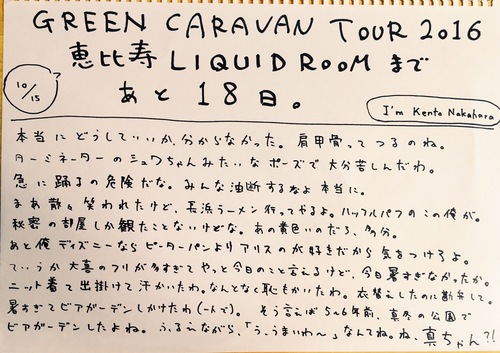 GREEN CARAVAN TOUR 2016
恵比寿 LIQUIDROOM まで
10/15
あと 18日。
I'm Kento Nakahara
本当にどうしていいか分からなかった。肩甲骨ってつるのね。
ターミネーターのシュワちゃんみたいなポーズで大分苦しんだわ。
急に踊るの危険だな。みんな油断するなよ本当に。
まあ散々笑われたけど、長浜ラーメン行ってやるよ。ハッフルパフのこの俺が。
秘密の部屋しか観たことないけどな。あの黄色いのだろ、多分。
あと俺ディズニーならピーターパンよりアリスのが好きだから気をつけろよ。
ていうか大喜のフリが多すぎてやっと今日のこと言えるけど、今日暑すぎなかったか。
ニット着て出掛けて汗かいたわ。なんとなく恥もかいたわ。衣替えしたのに勘弁して。
暑すぎてビアガーデンしかけたわ(一人で)。そう言えば5〜6年前、真冬の公園で
ビアガーデンしたよね。ふるえながら、「う、うまいわ〜」なんてね。ね、真ちゃん?!